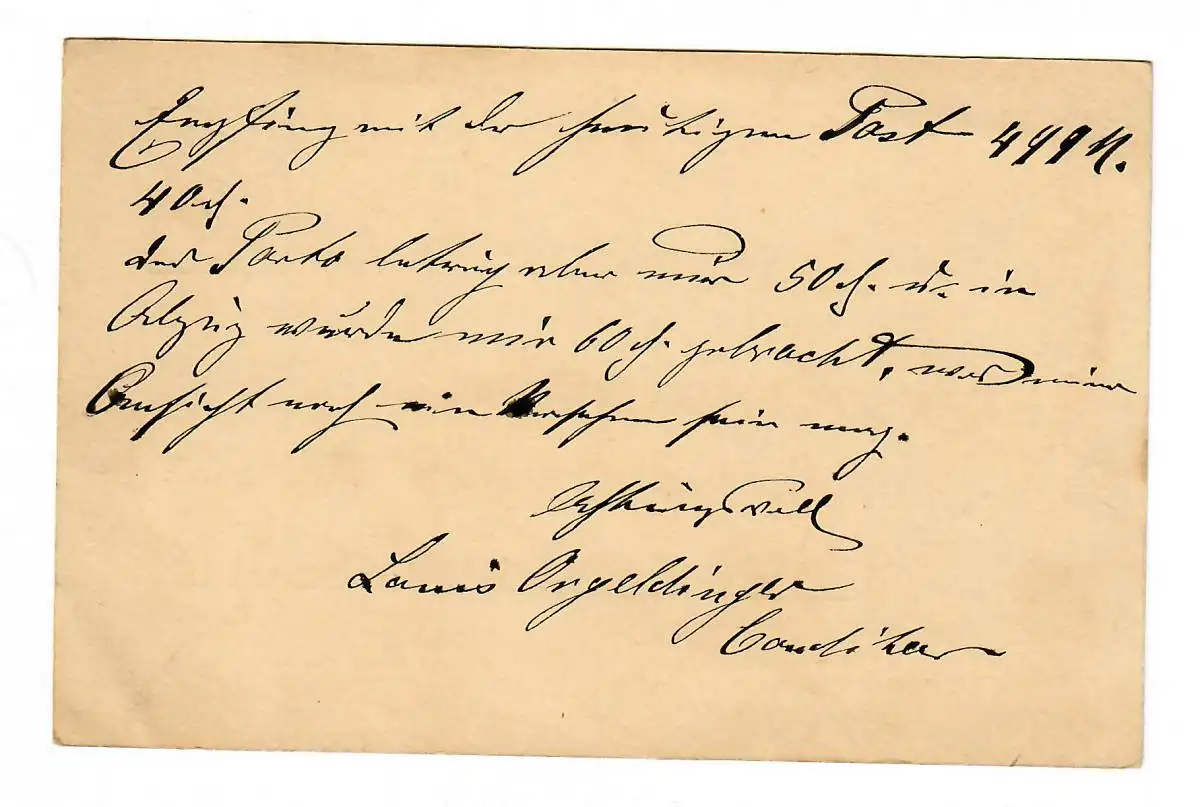 Empfing mit der heutigen Post 499 M.
40 ch.
das Porto betrug aber nur 50 ch. u. in
Abzug wurde mir 60 ch. gebracht, was meiner
Ansicht nach ein Versehen sein mag.
Achtungsvoll
Louis Orgeldinger
Conditor